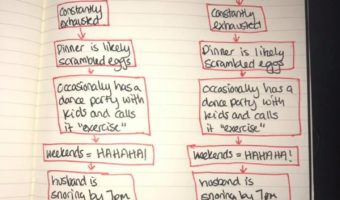 constantly
exhausted
Dinner is likely
scrambled eggs
occasionally has a
dance party with
kids and calls
it "exercise"
weekends = HAHAHA!
husband is
snoring by 7pm
constantly
exhausted
Dinner is likely
scrambled eggs
occasionally has a
dance party with
kids and calls
it "exercise"
weekends = HAHAHA!
husband is
snoring by 7pm